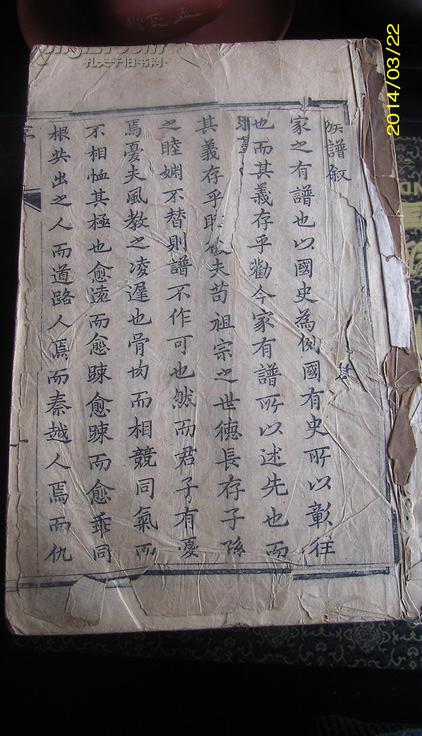 族譜叙
家之有譜也以國史為例國有史所以彰往
也而其義存乎勸今家有譜所以述先也而
其義存乎 夫苟祖宗之世德長存子孫
之睦婣不替則譜不作可也然而君子有憂
焉憂夫風教之凌遲也骨肉而相競同氣而
不相恤其極也愈遠而愈踈愈踈而愈乖同
根共出之人而道路人焉而秦越人焉而仇
孔夫子旧书网
2014/03/22